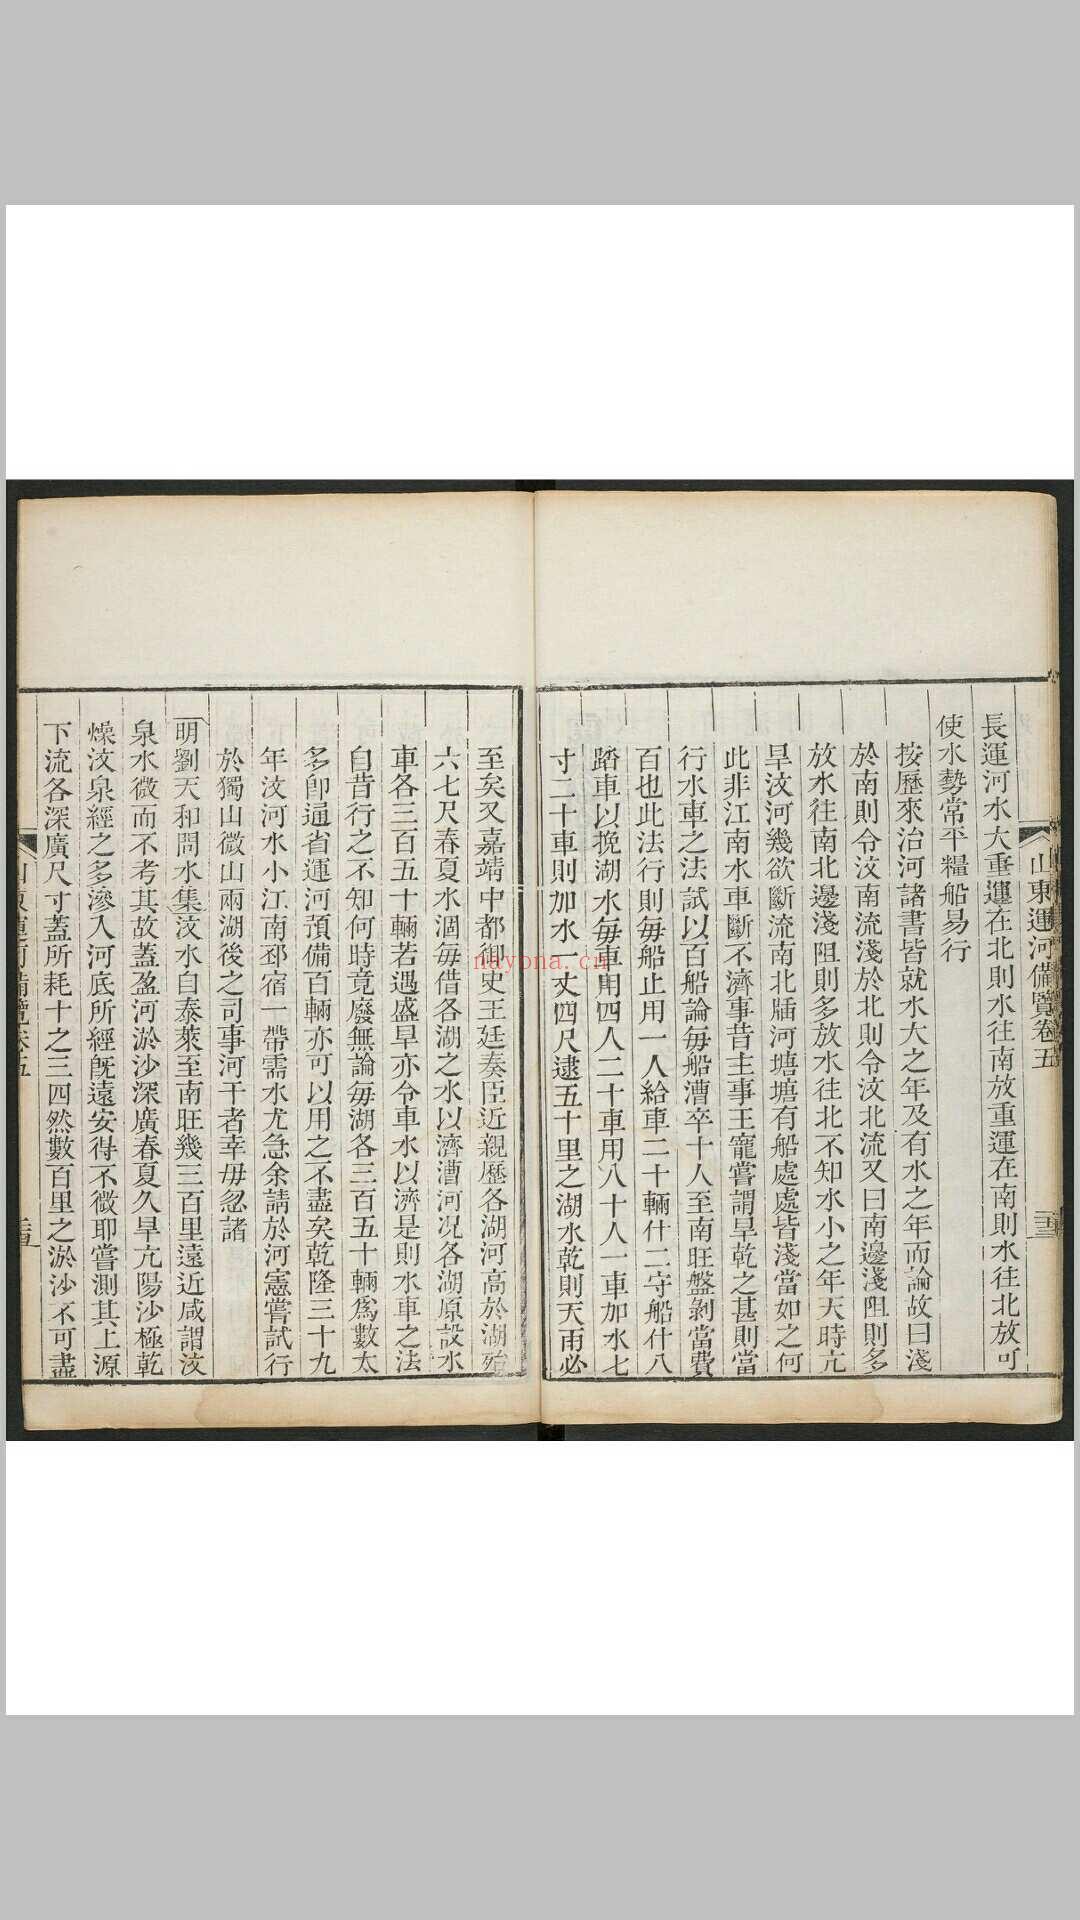 山東運河備覽卷五
長運河水大重運在北則水往南放重運在南則水往北放可
使水勢常平糧船易行
按歷來治河諸書皆就水大之年及有水之年而論故曰淺
於南則令汶南流淺於北則令汶北流又曰南邊淺阻則多
放水往南北邊淺阻則多放水往北不知水小之年天時亢
旱汶河幾欲斷流南北牐河塘塘有船處處皆淺當如之何
此非江南水車斷不濟事昔主事王寵嘗謂旱乾之甚則當
行水車之法試以百船論每船漕卒十人至南旺盤剝當費
百也此法行則每船止用一人給車二十輛什二守船什八
踏車以挽湖水每車用四人二十車用八十人一車加水七
寸二十車則加水一丈四尺逮五十里之湖水乾則天雨必
至矣又嘉靖中都御史王廷奏臣近親歷各湖河高於湖殆
六七尺春夏水涸每借各湖之水以濟漕河況各湖原設水
車各三百五十輛若遇盛旱亦令車水以濟是則水車之法
自昔行之不知何時竟廢無論每湖各三百五十輛爲數太
多卽通省運河預備百輛亦可以用之不盡矣乾隆三十九
年汶河水小江南邳宿一帶需水尤急余請於河憲嘗試行
於獨山微山兩湖後之司事河干者幸毋忽諸
明劉天和問水集汶水自泰萊至南旺幾三百里遠近咸謂汶
泉水微而不考其故蓋盈河淤沙深廣春夏久旱亢陽沙極乾
燥汶泉經之多滲入河底所經旣遠安得不微耶嘗測其上源
下流各深廣尺寸蓋所耗十之三四然數百里之淤沙不可盡
nayona.cn